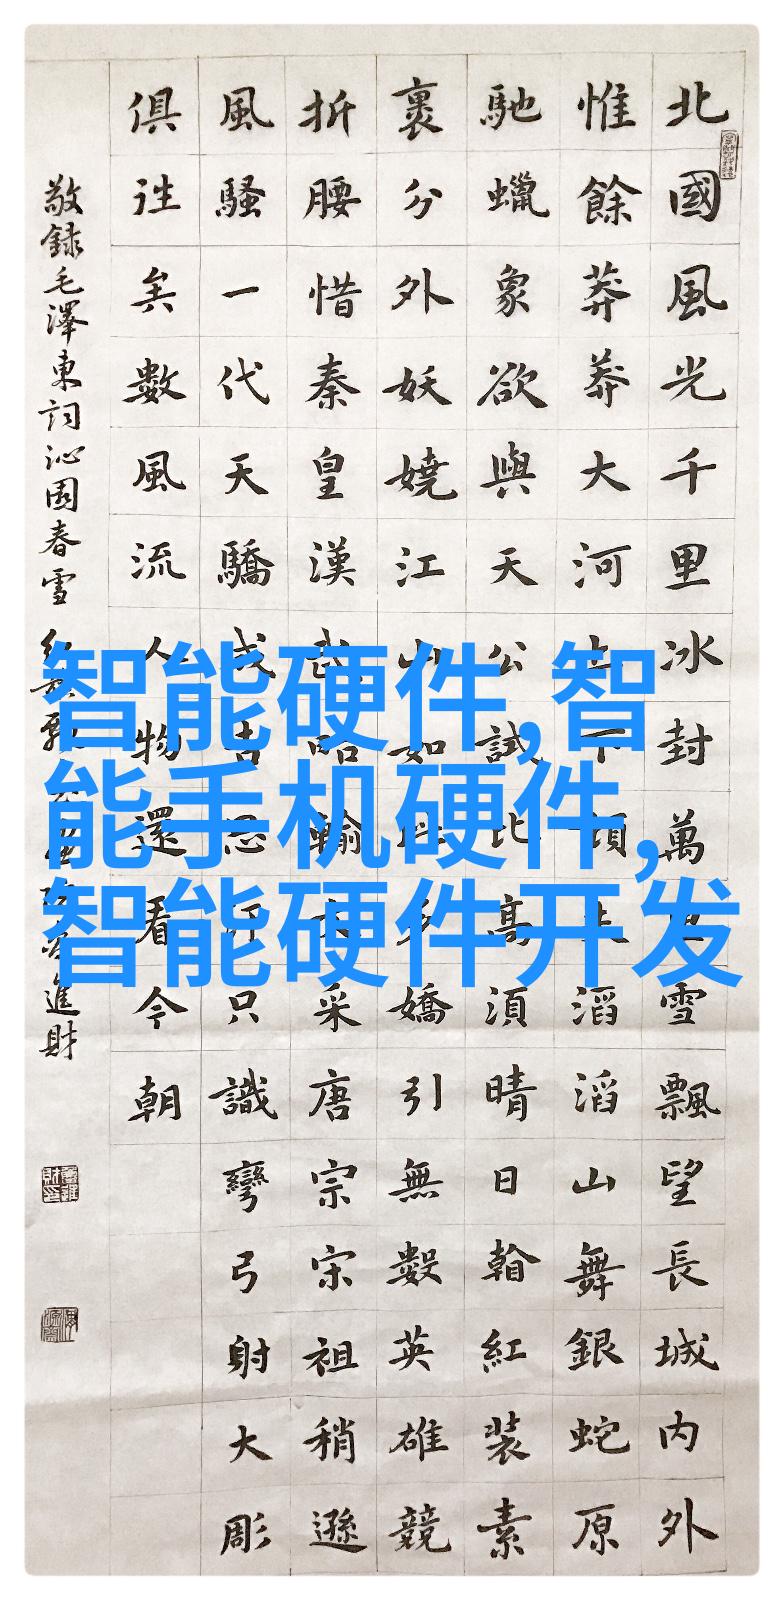 智能硬件,智
能手机硬件,
智能硬件开发
北國風光千里冰封萬里雪飄望長城内外
惟餘莽莽大河上下頓失滔滔山舞銀蛇原
馳蠟象欲與天公試比高須晴日看紅裝素
裹分外妖嬈江山如此多嬌引無數英雄競
折腰惜秦皇漢武略輸文采唐宗宋祖稍遜
風騷一代天驕成吉思汗只識彎弓射大彫
俱往矣數風流人物還看今朝
敬録毛澤東詞沁園春雪 進財